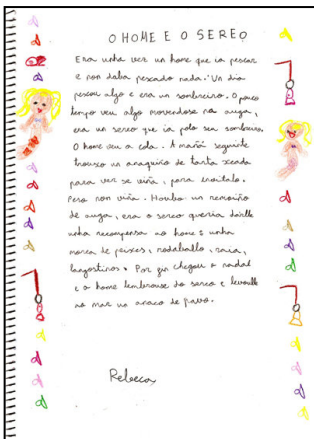 O HOME E O SEREO
Era unha vez un home que ia pescar
e non daba pescado nada. Un dia
pescou algo e era un sombreiro. O pouco
tempo veu algo movendose na auga,
era un sereo que ia polo seu sombreiro.
O home veu a cola. A mañá seguinte
trouxo un anaquiño de tarta xeada
para ver se viña, para invitalo.
Pero non viña. Houbo un remoiño
de auga, era o sereo queria darlle
unha recompensa ao home: unha
morea de peixes, rodaballo, raia,
langostinos. Por fin chegou o nadal
e o home lembrouse do sereo e levoulle
ao mar un anaco de pavo.
Rebeca